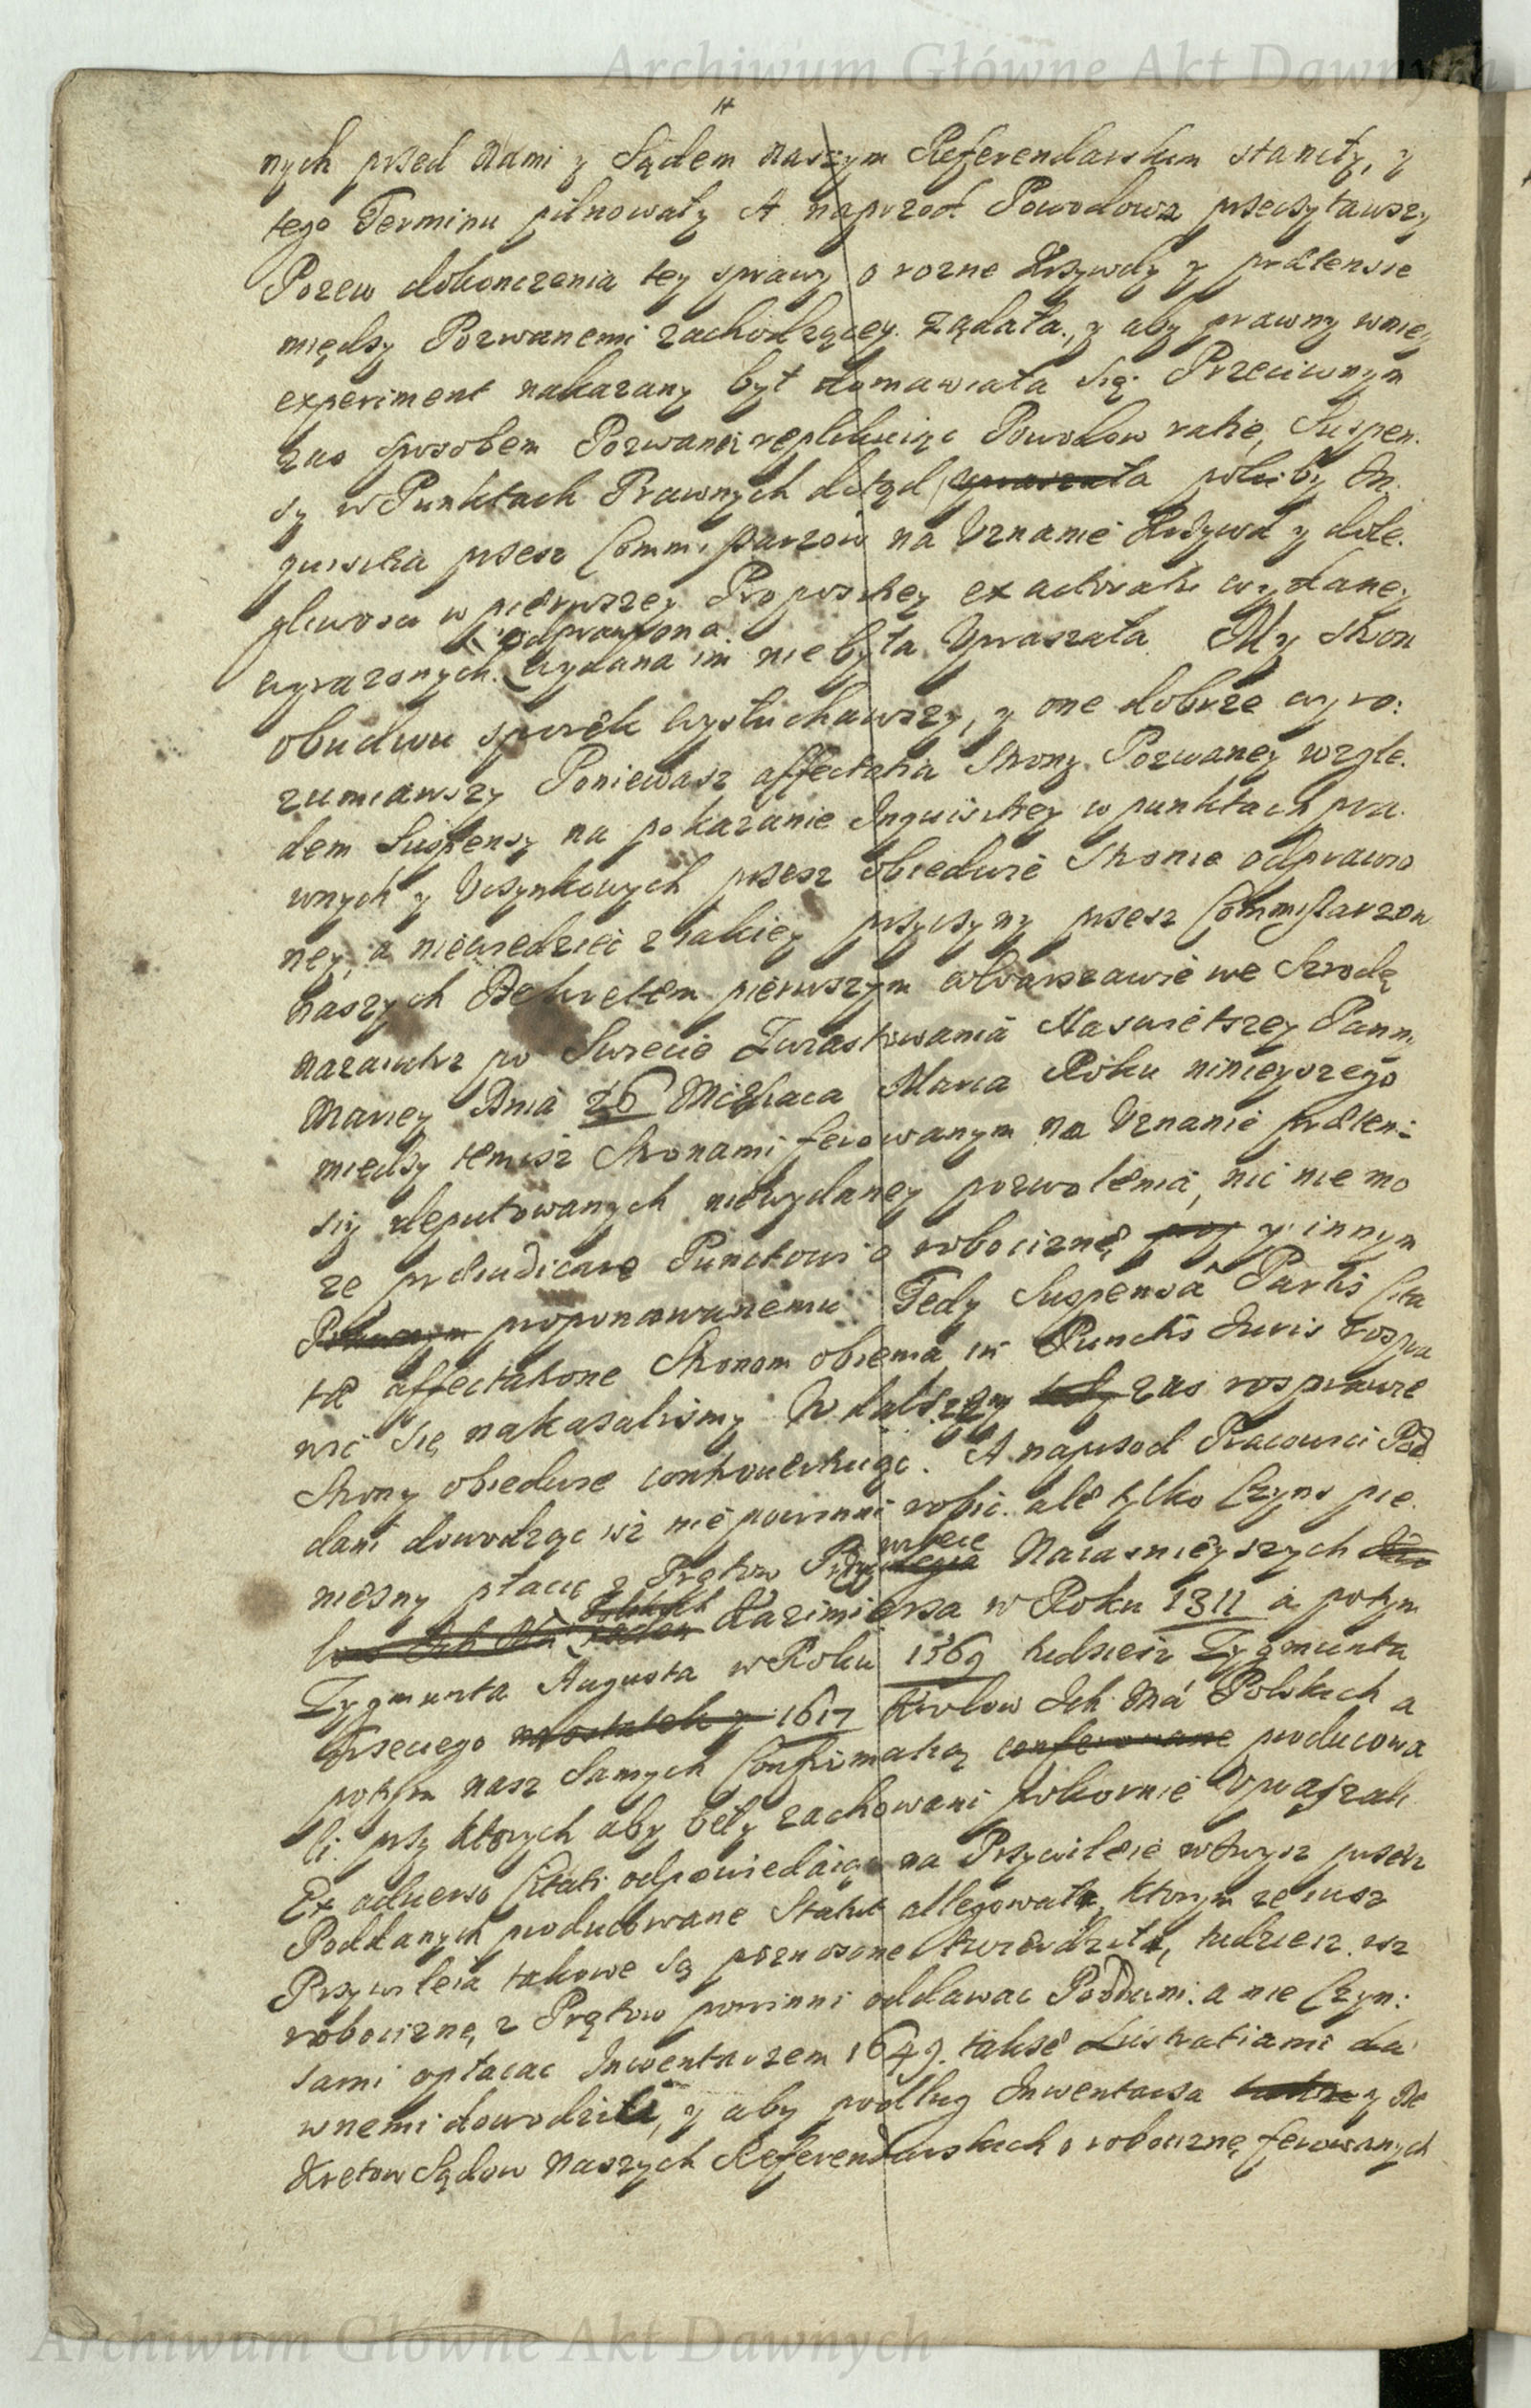 Archiwum Główne Akt Dawnych
nych przed Nami y Sądem naszym Referendarskim stanęły, y
tego Terminu pilnowały A naprzod Powodowa przeczytawszy
Pozew dokonczenia tey sprawy o rozne Krzywdy y prætensie
między Pozwanemi zachodzącey. ządała, y aby prawny w niey
experiment nakazany był domawiała Się. Przeciwnym
zas sposobem Pozwani replikuiąc Powodow ratie, Suspen.
sy w Punktach Prawnych dotąd upraszała poki by In.
quisitia przesz Commissarzow na Uznanie Krzywd y dole.
gliwosci w pierwszey Propositiey ex actoratu wydaney
odprawiona
wyrazonych. wydana im nie była Upraszała. My Stron
obudwu sporek wysłuchawszy, y one dobrze wyro:
zumiawszy Poniewasz affectatia Strony Pozwaney wzglę.
dem Suspensy na pokazanie Inquisitiey w punktach pra.
wnych y Uczynkowych przesz obiedwie Stronie odprawio
ney, a niewiedziec z iakiey przyczyny przesz Commissarzow
naszych Dekretem pierwszym w Warszawie we Srzodę
nazaiutrz po Swięcie Zwiastowania Naswiętszey Panny
Mariey Dnia 26 Miesiąca Marca Roku ninieyszego
między temisz Stronami ferowanym na Uznanie præten:
sij deputowanych niewydaney pozwolenia, nic nie mo
ze præiudicare Punctowi o robociznę y innym
proponowanemu Tedy Suspensa Partis Cita
tæ affectatione Stronom obiema in Punctis Iuris rospra
wić się nakazalismy. W dalszey zas rosprawie
Strony obiedwie controwertuiąc. A naprzod Pracowici Pod
dani dowodząc isz nie powinni robic. ale tylko Czynsz pie
niezny płacic z Prętow Naiasnieyszych
Polskich Kazimierza w Roku 1311 a potym
Zygmunta Augusta w Roku 1569 tudziesz Zygmunta
trzeciego 1617 Krolow Ich Mci Polskich a
potym nasz Samych Confirmatią conferowane producowa
li przy ktorych aby beły zachowani pokornie Upraszali
Ex adverso Citati odpowiedaiąc na Przywileie wtwysz przesz
Poddanych producowane Statut allegowała, ktorym ze iusz
Przywileia takowe są poznoszone twierdziła, tudziesz isz
robociznę z Prętow powinni oddawac Poddani. a nie Czyn:
szami opłacac Inwentarzem 1649. także Lustratiami da
wnemi dowodzili, y aby podług Inwentarza y De
kretow Sądow Naszych Referendarskich o robociznę ferowanych
Archiwum Główne Akt Dawnych